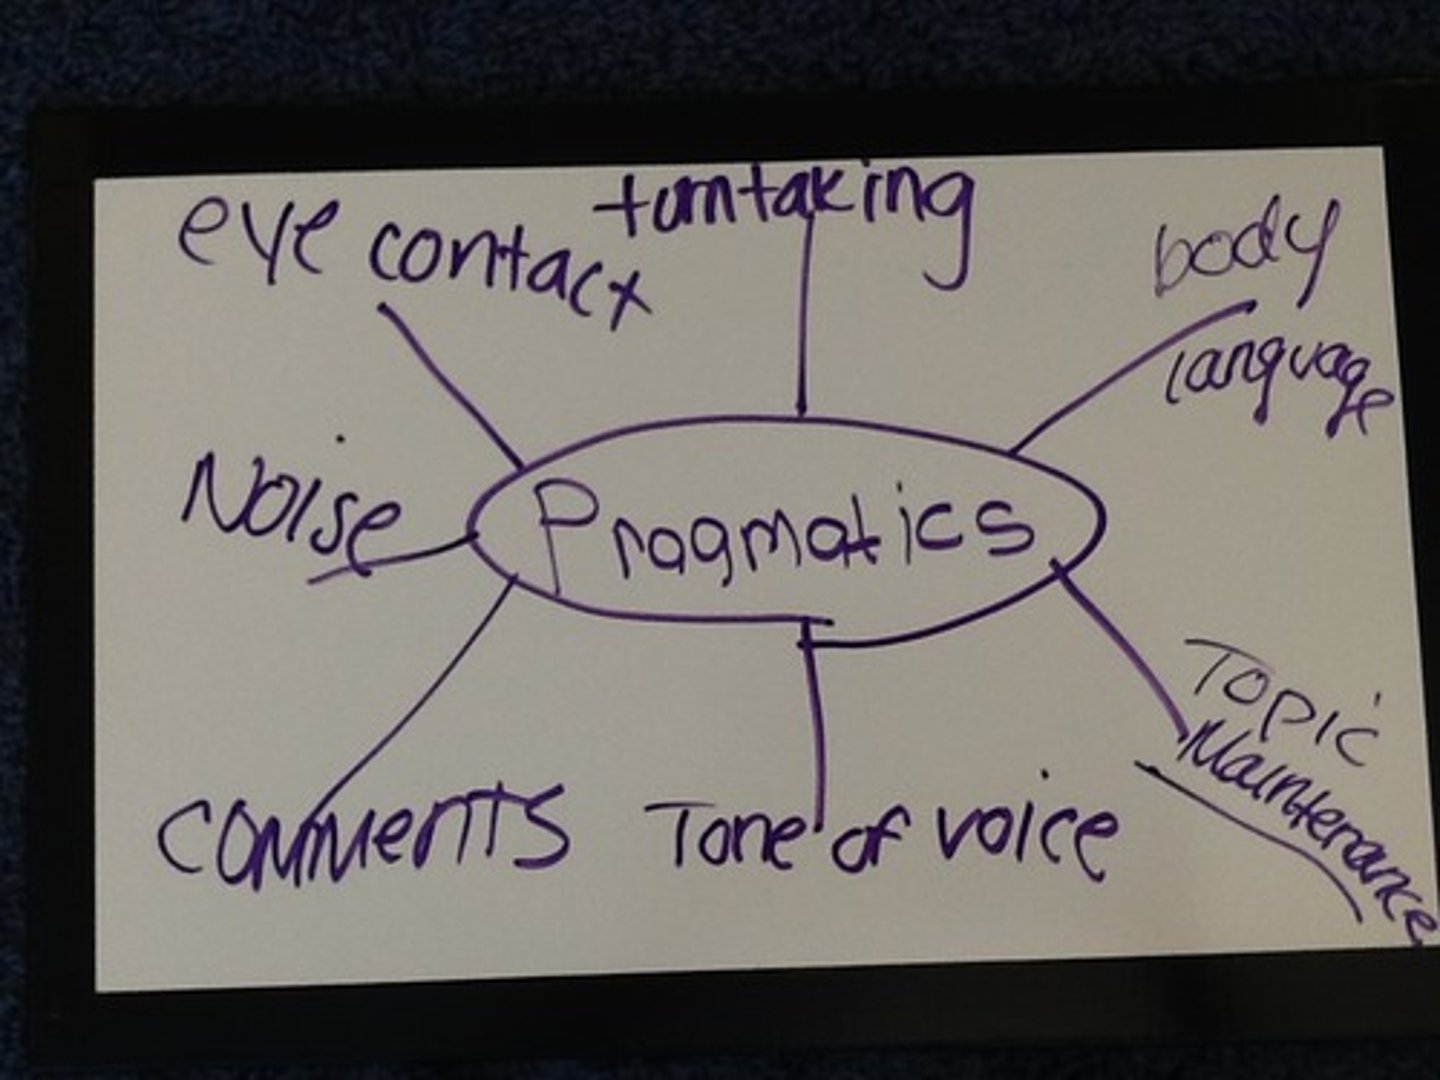 eye contact
turntaking
body
language
Noise
Pragmatics
Topic
Maintenance
comments
Tone of voice